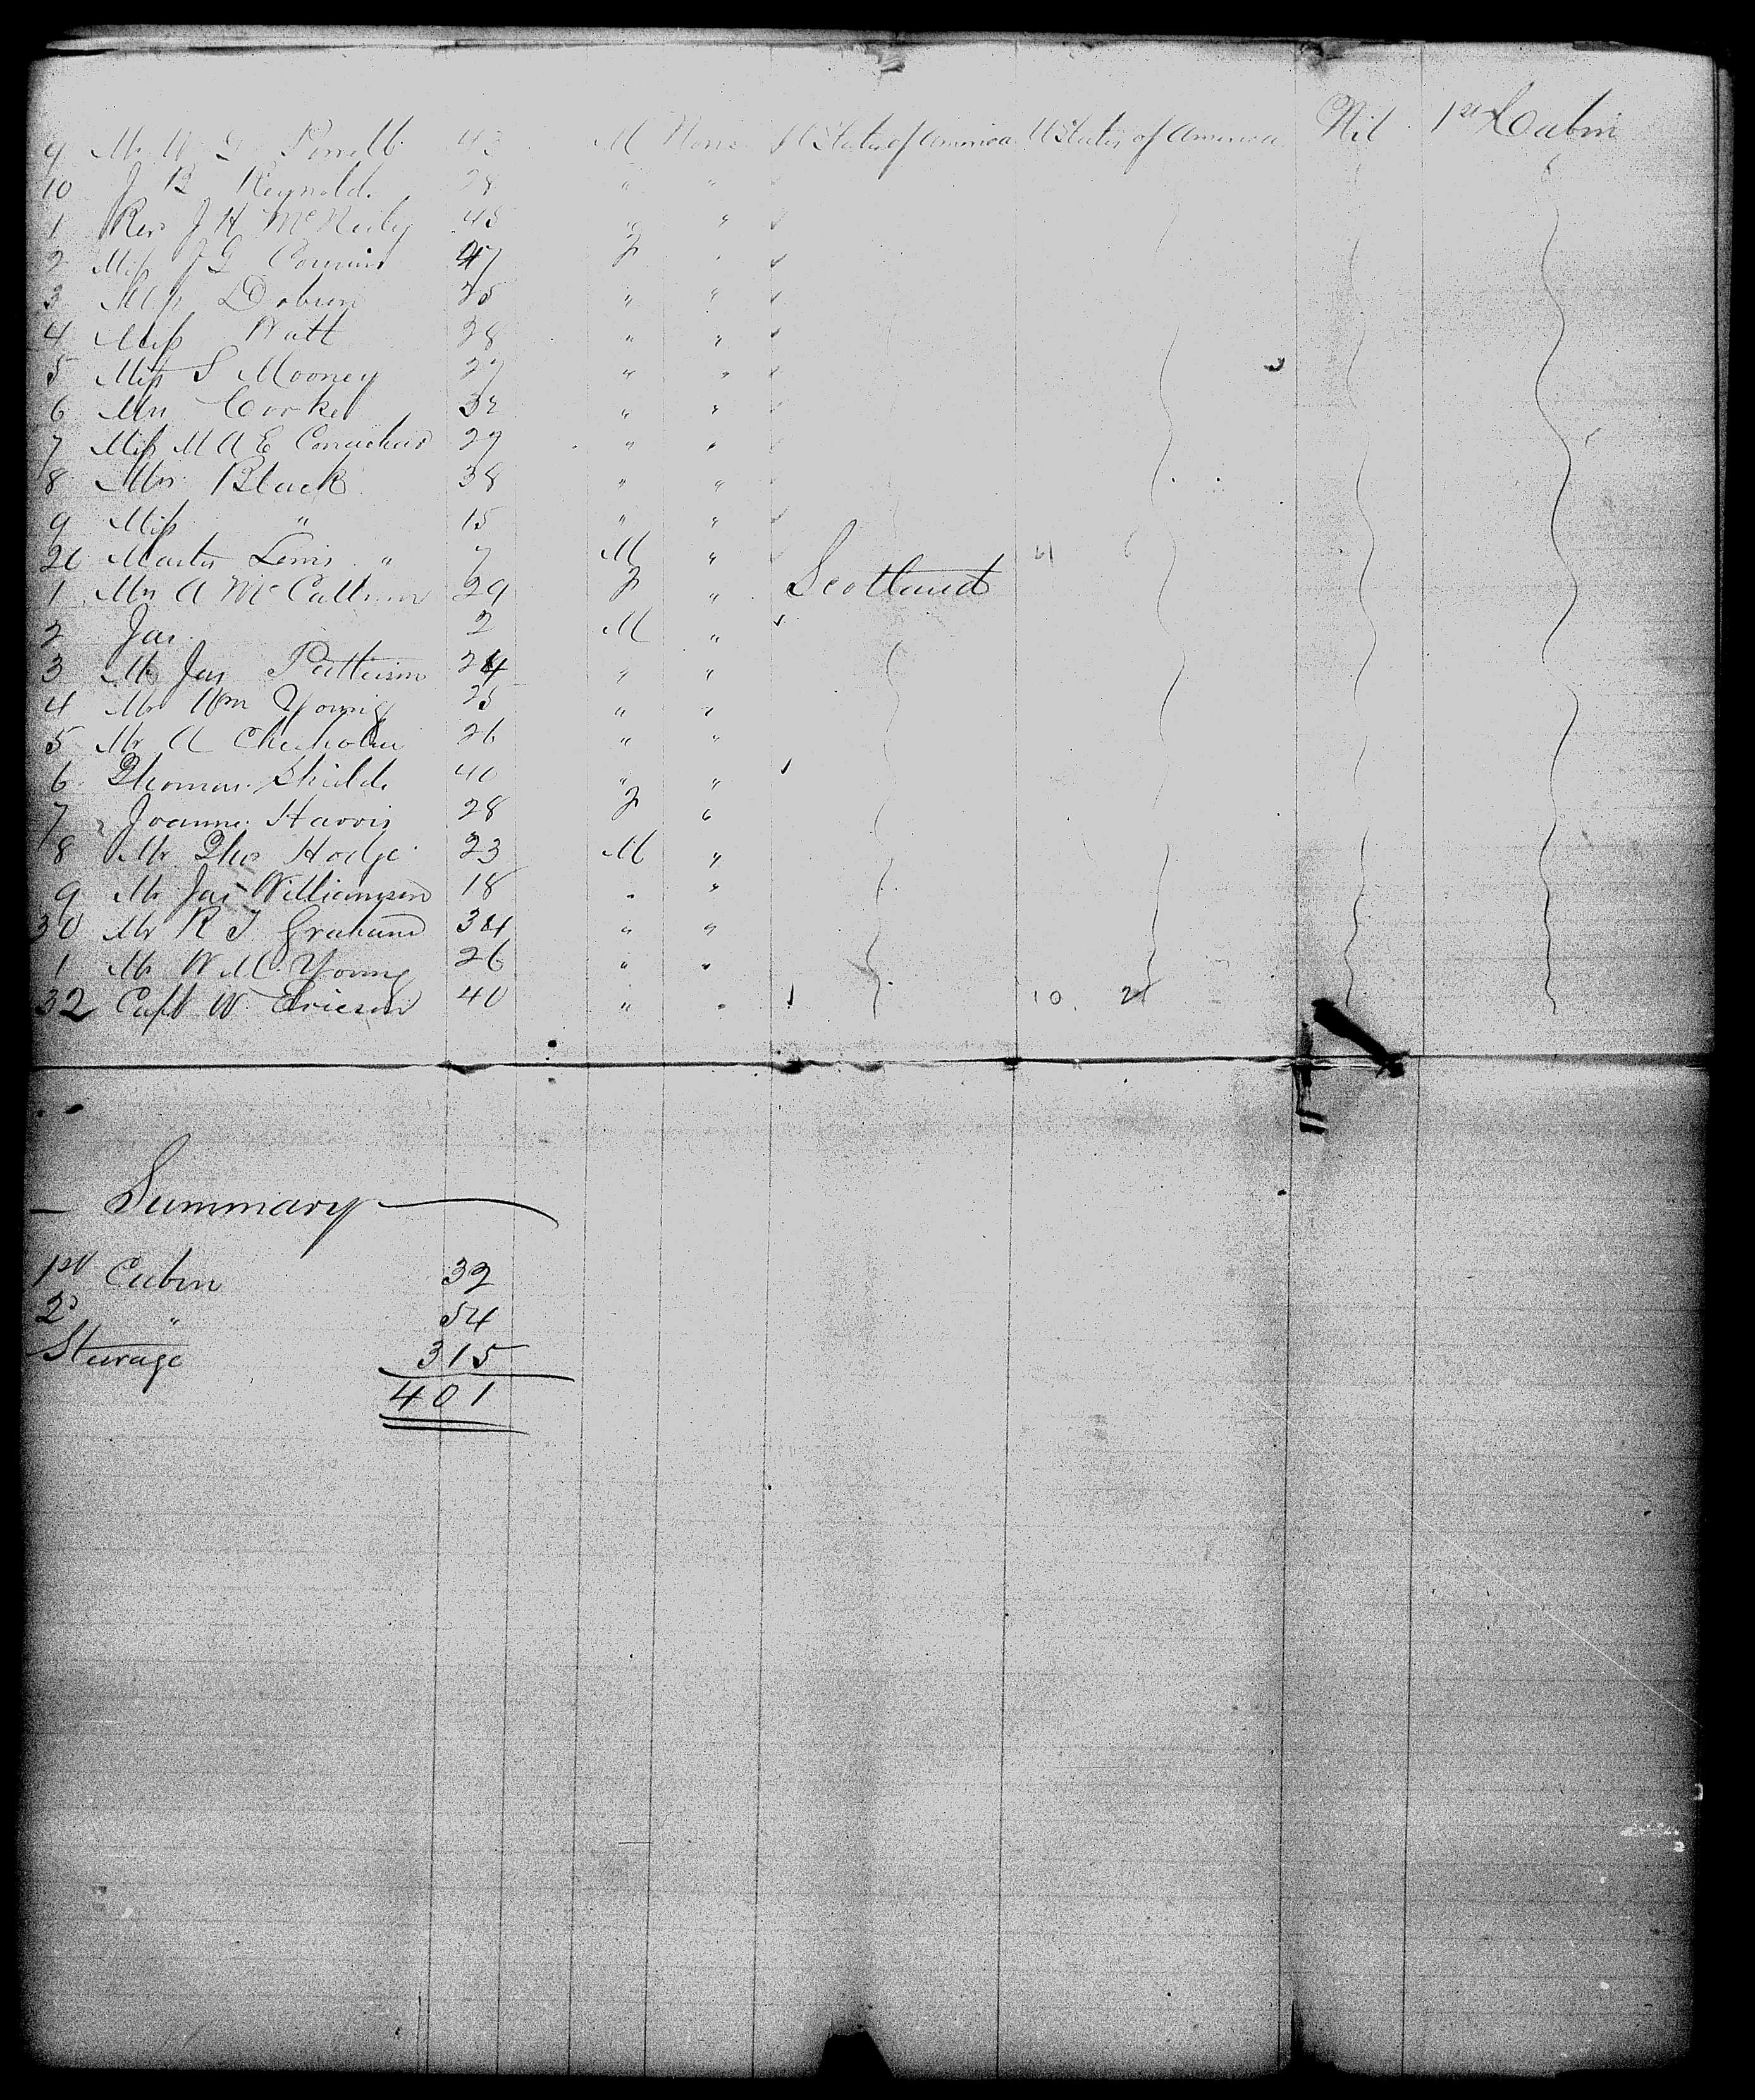 Nil 1st Cabin
9 Mr W G Powell 43 M None U States of America U States of America
10 J B Reynolds 28 " "
1 Rev J H McNeily 45 " "
2 Miss J G 47 F "
3 Miss Dobson 25 " "
4 Miss Watt 28 " "
5 Miss S Mooney 27 " "
6 Mrs Corker 32 " "
7 Miss M A E 29 " "
8 Mrs Black 38 " "
9 Miss " 15 " "
20 Master Lewis " 7 M "
1 Mrs A McCallum 29 F " Scotland
2 Jas 2 M "
3 Mr Jas Patterson 24 " "
4 Mr Wm Young 25 " "
5 Mr A Chisholm 26 " "
6 Thomas Shields 40 " "
7 Joanna Harris 28 F "
8 Mr Thos Hodge 23 M "
9 Mr Jas Williamson 18 " "
30 Mr R J Graham 34 " "
1 Mr W M Young 26 " "
32 Capt W Ericson 40 " " 10 21
Summary
1st Cabin 32
2d " 54
Steerage 315
401